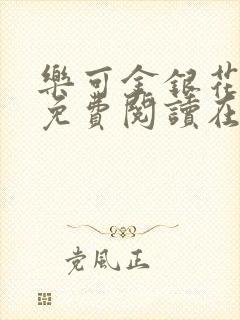 樂可金銀花
免費閱讀在
党風正